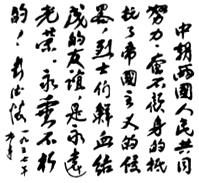 中朝兩國人民共同
努力，奮不顧身的抵
抗了帝國主义的侵
畧，烈士们鮮血结
成的友誼，是永遠
光荣，永垂不朽
的！彭德怀
一九五七年